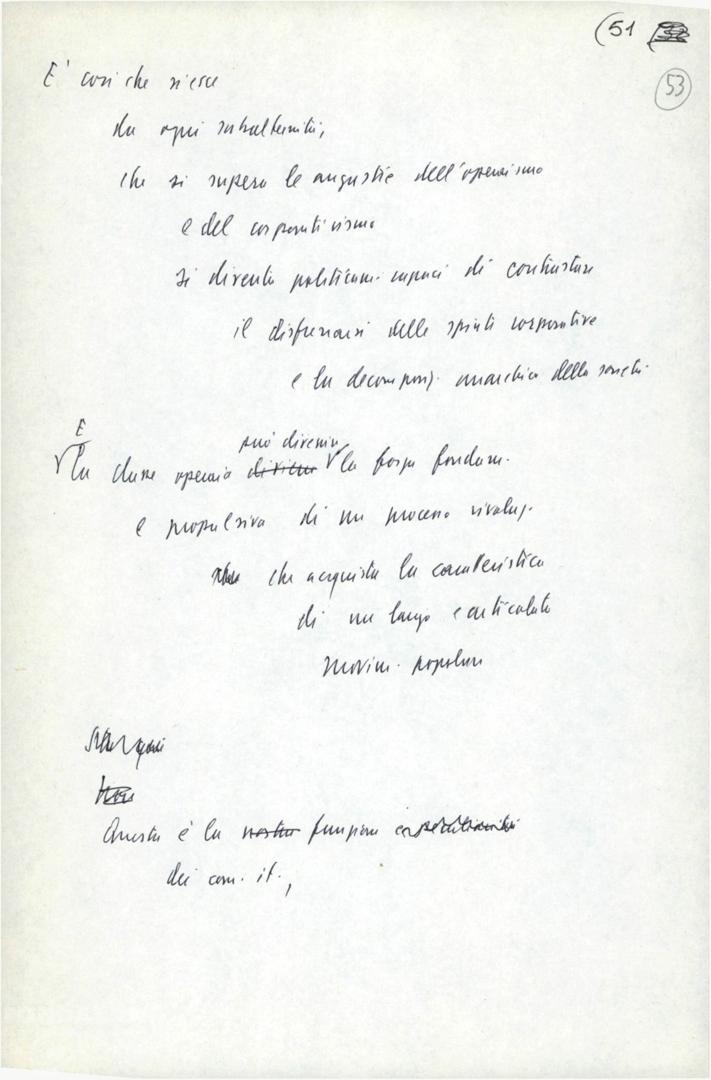 (51
53
E' così che si esce
da ogni subalternità,
che si supera le angustie dell'operaismo
e del corporativismo
si diventa politicam. capaci di contrastare
il disfrenarsi delle spinte corporative
e la decomposiz. anarchica della società.
E
può divenire
la classe operaia diviene la forza fondam.
e propulsiva di un processo rivoluz.
che acquista la caratteristica
di un largo e articolato
movim. popolare
Questa è la nostra funzione
dei com. it.,